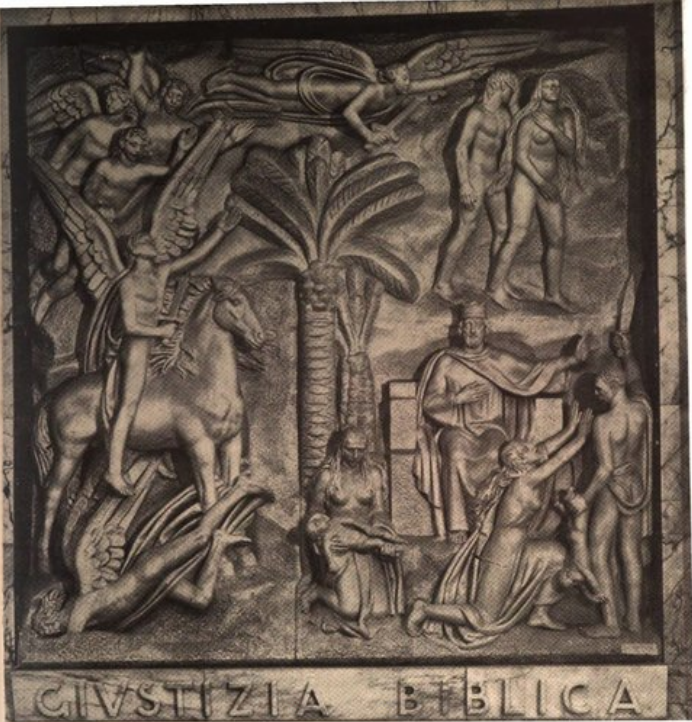 GIVSTIZIA BIBLICA